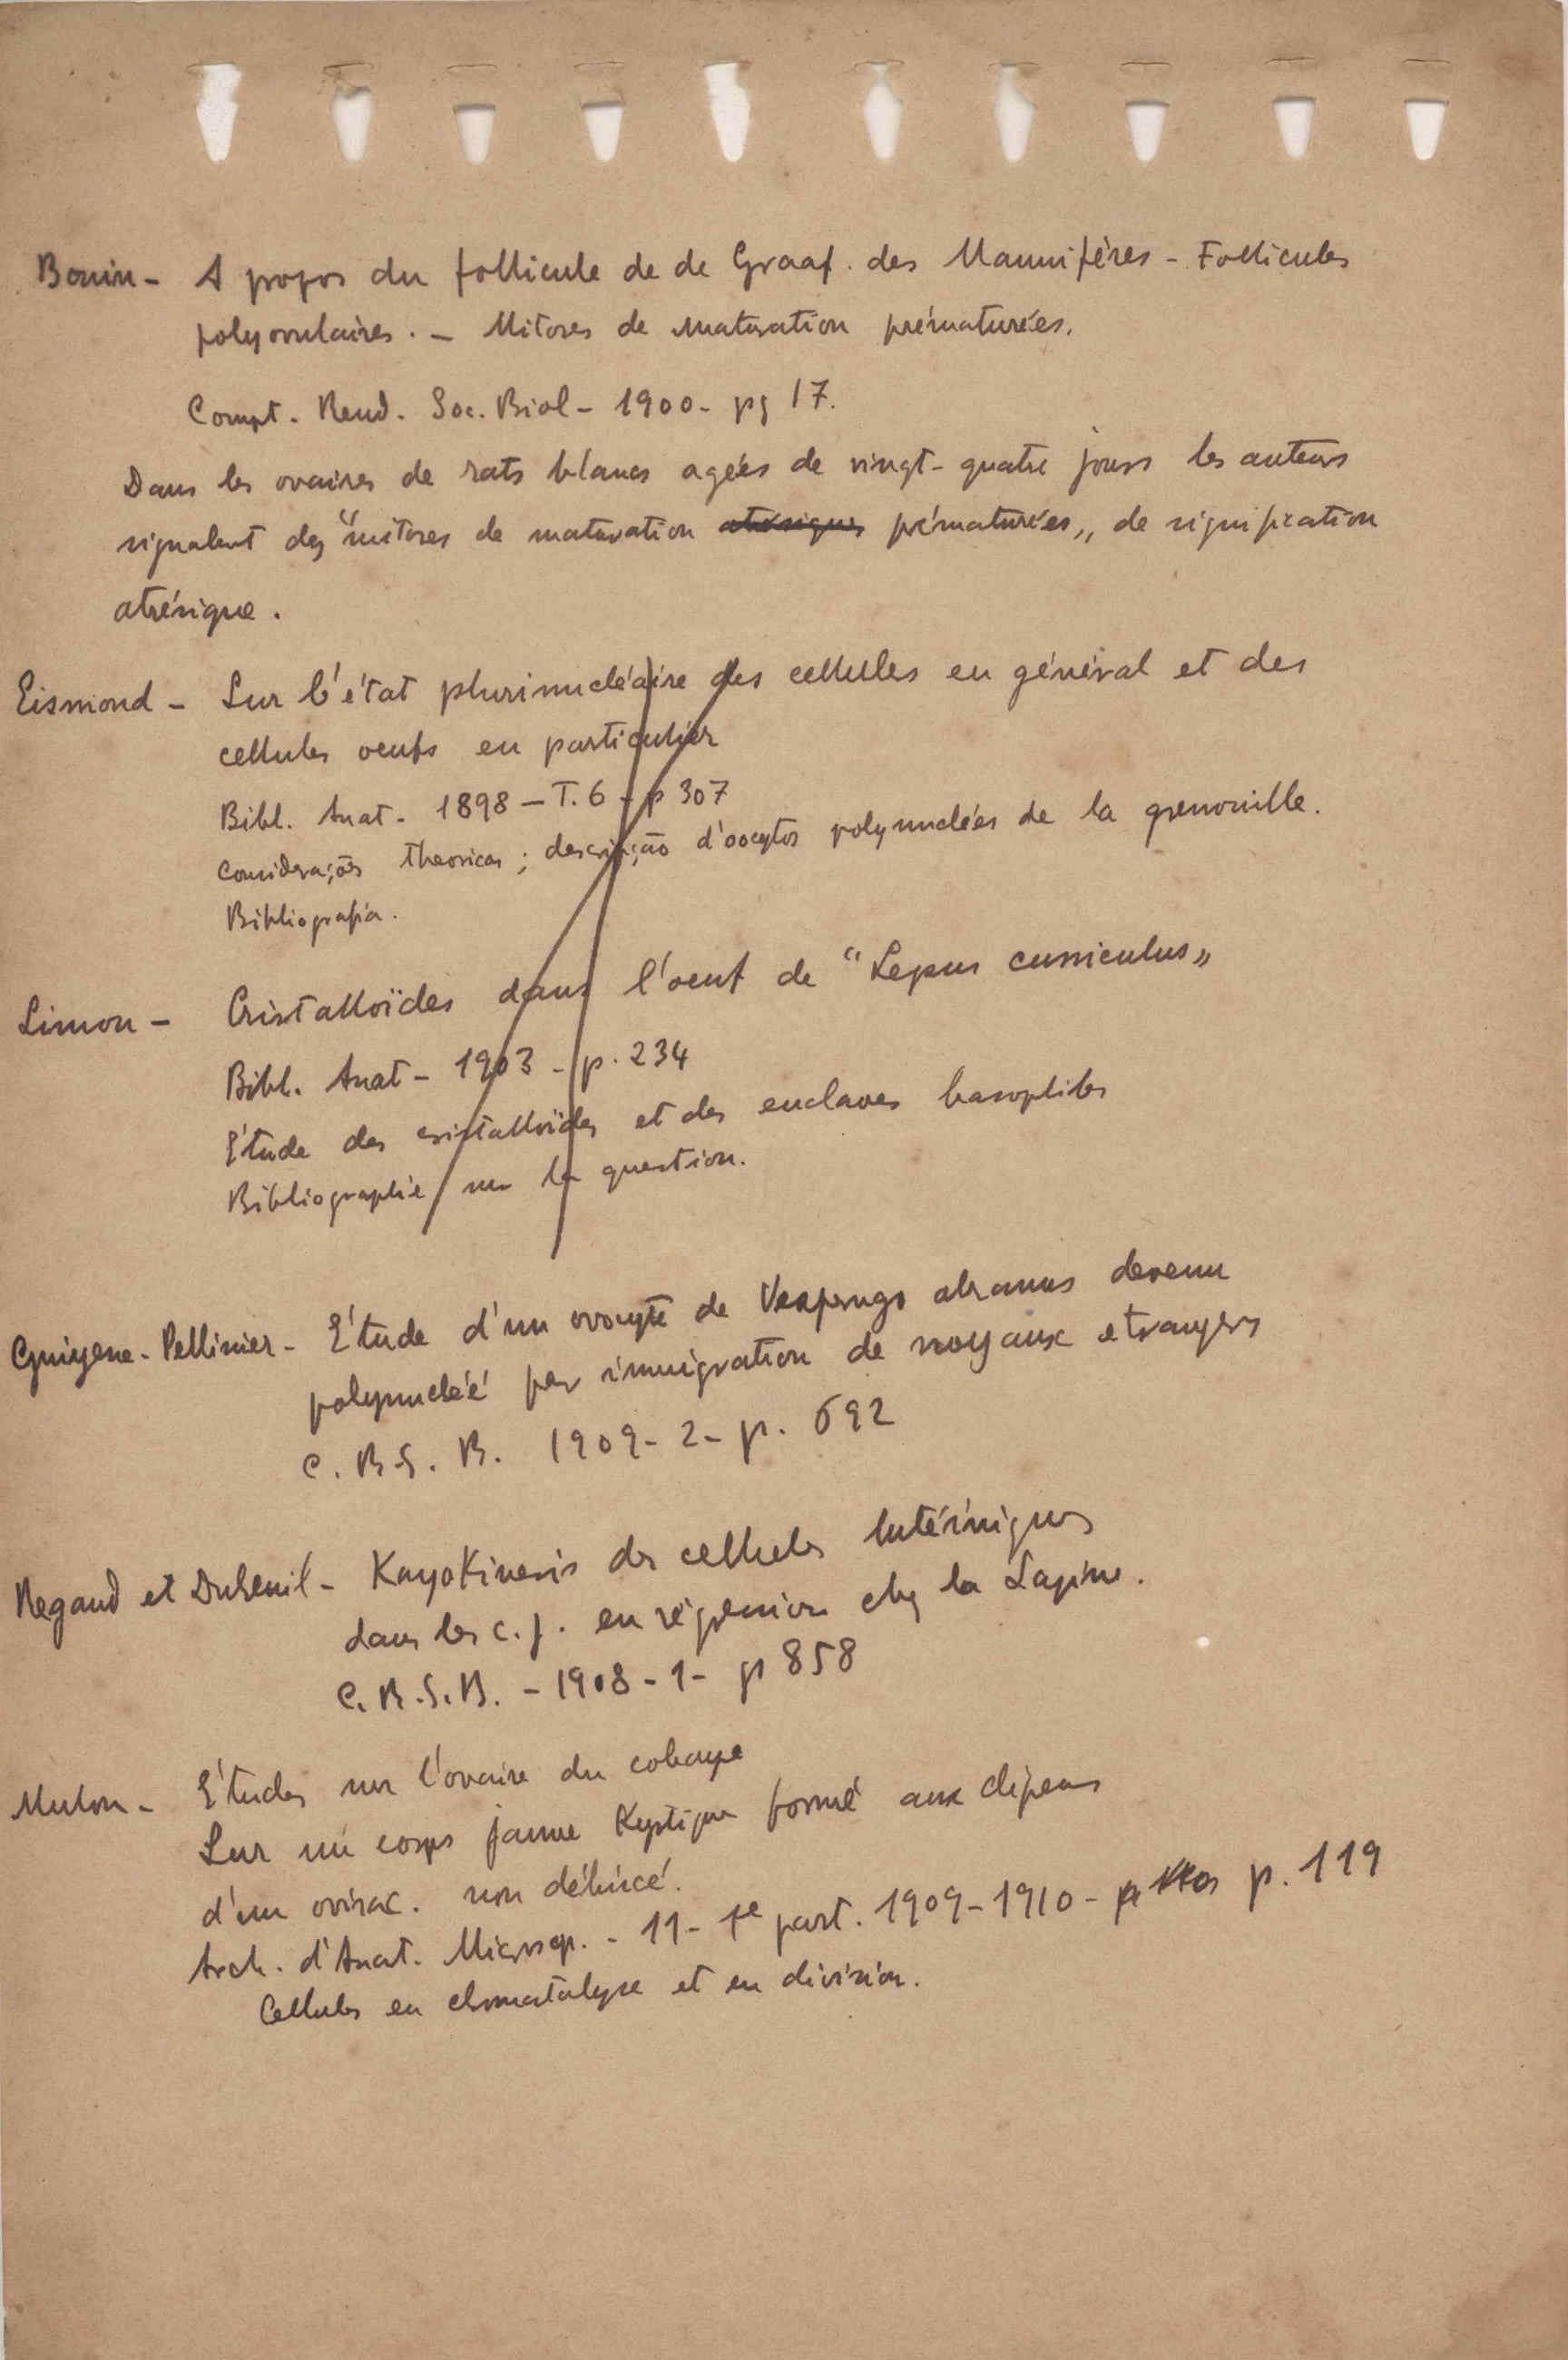 Bouin - A propos du follicule de de Graaf. des Mammifères - Follicules
polyovulaires. - Mitoses de maturation prématurées.
Compt. Rend. Soc. Biol - 1900 - pg 17.
Dans les ovaires de rats blancs agées de vingt-quatre jours les auteurs
signalent des "mitoses de maturation atrésiques prématurées„ de signification
atrésique.
Eismond - Sur l'état plurinucléaire des cellules en général et des
cellules oeufs en particulier
Bibl. Anat. 1898 - T. 6 - p 307
Considerações theoricas ; descripção d'oocytos polynucléés de la grenouille.
Bibliografia.
Limon - Cristalloïdes dans l'oeuf de "Lepus cuniculus„
Bibl. Anat - 1903 - p. 234
Étude des cristalloïdes et des enclaves basophiles
Bibliographie sur la question.
- Étude d'un ovocyte de Vesperugo abramus devenu
polynucléé par immigration de noyaux etrangers
C. R. S. B. 1909 - 2 - p. 692
Regand et Dubreuil - Kayokinesis des cellules lutéiniques
dans les c. j. en régression chez la Lapine.
C. R. S. B. - 1908 - 1 - p 858
Mulon - Études sur l'ovaire du cobaye
Sur un corps jaune Kystique formé aux dépens
d'un ovisac. non déhiscé.
Arch. d'Anat. Microsop. - 11 - 1e part. 1909-1910 - p. 119
Cellules en chromatolyse et en division.